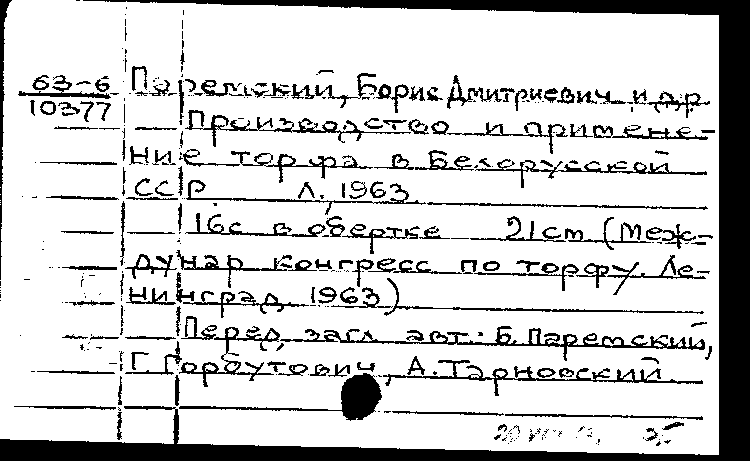 63-6
10377
Паремский, Борис Дмитриевич и др.
Производство и примене-
ние торфа в Белорусской
ССР. Л., 1963.
16с в обертке 21см (Меж-
дунар конгресс по торфу. Ле-
нинград. 1963)
Перед загл авт.: Б. Паремский,
Г. Горбутович, А. Тарновский